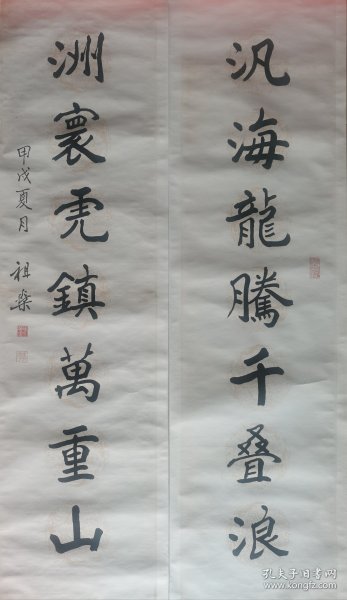 汎海龍騰千叠浪
洲寰虎鎮萬重山
甲戌夏月
祖燊
孔夫子旧书网
www.kongfz.com